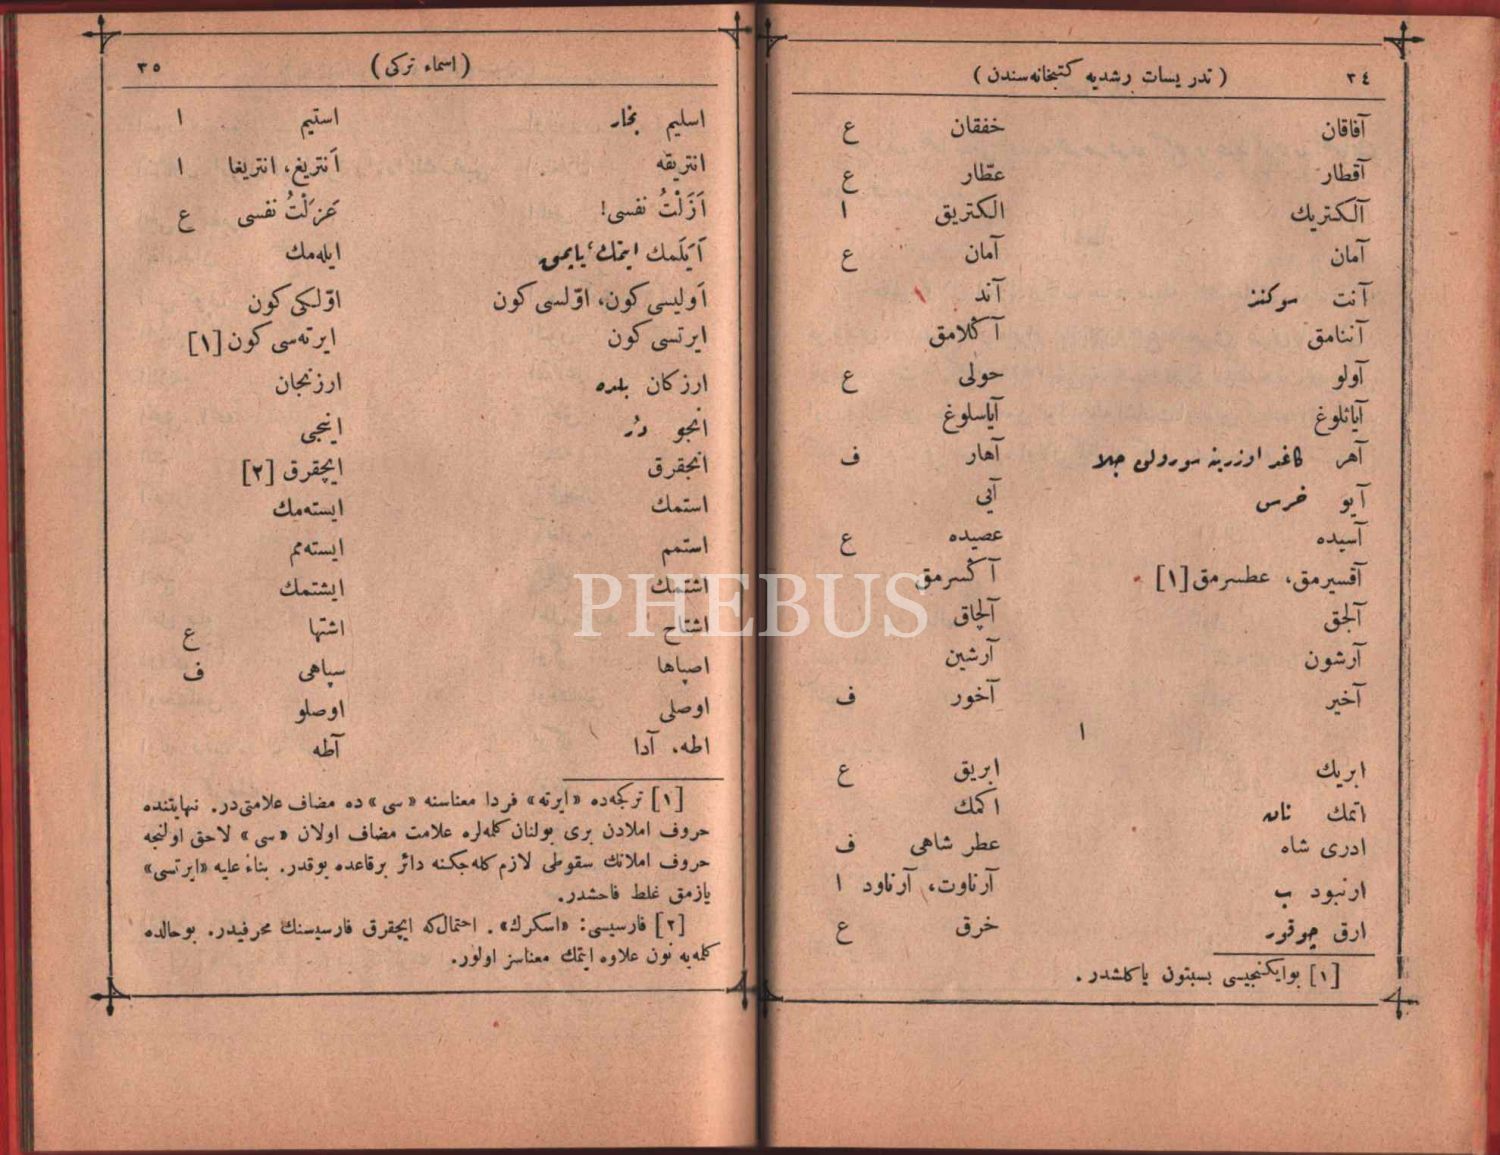 ٣٤ ( تدريسات رشديه كتبخانه‌سندن )
آفاقان خفقان ع
آقطار عطّار ع
آلكتريك الكتريق ا
آمان آمان ع
آنت سوكند آند
آننامق آكلامق
آولو حولى ع
آياثلوغ آياسلوغ
آهر كاغد اوزرينه سورولن جلا آهار ف
آيو خرس آيى
آسيده عصيده ع
آقسيرمق، عطسرمق [١] آكسرمق
آلجق آلچاق
آرشون آرشين
آخير آخور ف
ا
ابريك ابريق ع
اتمك نان اكمك
ادرى شاه عطر شاهى ف
ارنبود ب آرناوت، آرناود ا
ارق چوقور خرق ع
[١] بوايكنجيسى بسبتون ياكلشدر.
( اسماء تركى ) ٣٥
اسليم بخار استيم ا
انتريقه اَنتريغ، انتريغا ا
اَزَلْتُ نفسى! عَزَلْتُ نفسى ع
اَيَلَمك ايتمك، يايمق ايله‌مك
اَوليسى كون، اوّلسى كون اوّلكى كون
ايرتسى كون ايرته‌سى كون [١]
ارزكان بلده ارزنجان
انجو دُر اينجى
انجقرق ايچقرق [٢]
استمك ايسته‌مك
استمم ايسته‌مم
اشتمك ايشتمك
اشتاح اشتها ع
اصپاها سپاهى ف
اوصلى اوصلو
اطه، آدا آطه
[١] تركجه‌ده «ايرته» فردا معناسنه «سى» ده مضاف علامتى‌در. نهايتنده
حروف املادن برى بولنان كله‌لره علامت مضاف اولان «سى» لاحق اولنجه
حروف املانك سقوطى لازم كله‌جكنه دائر برقاعده يوقدر. بناءً عليه «ايرتسى»
يازمق غلط فاحشدر.
[٢] فارسيسى: «اسكرك». احتمال‌كه ايچقرق فارسيسنك محرفيدر. بوحالده
كله‌يه نون علاوه ايتمك معناسز اولور.
PHEBUS